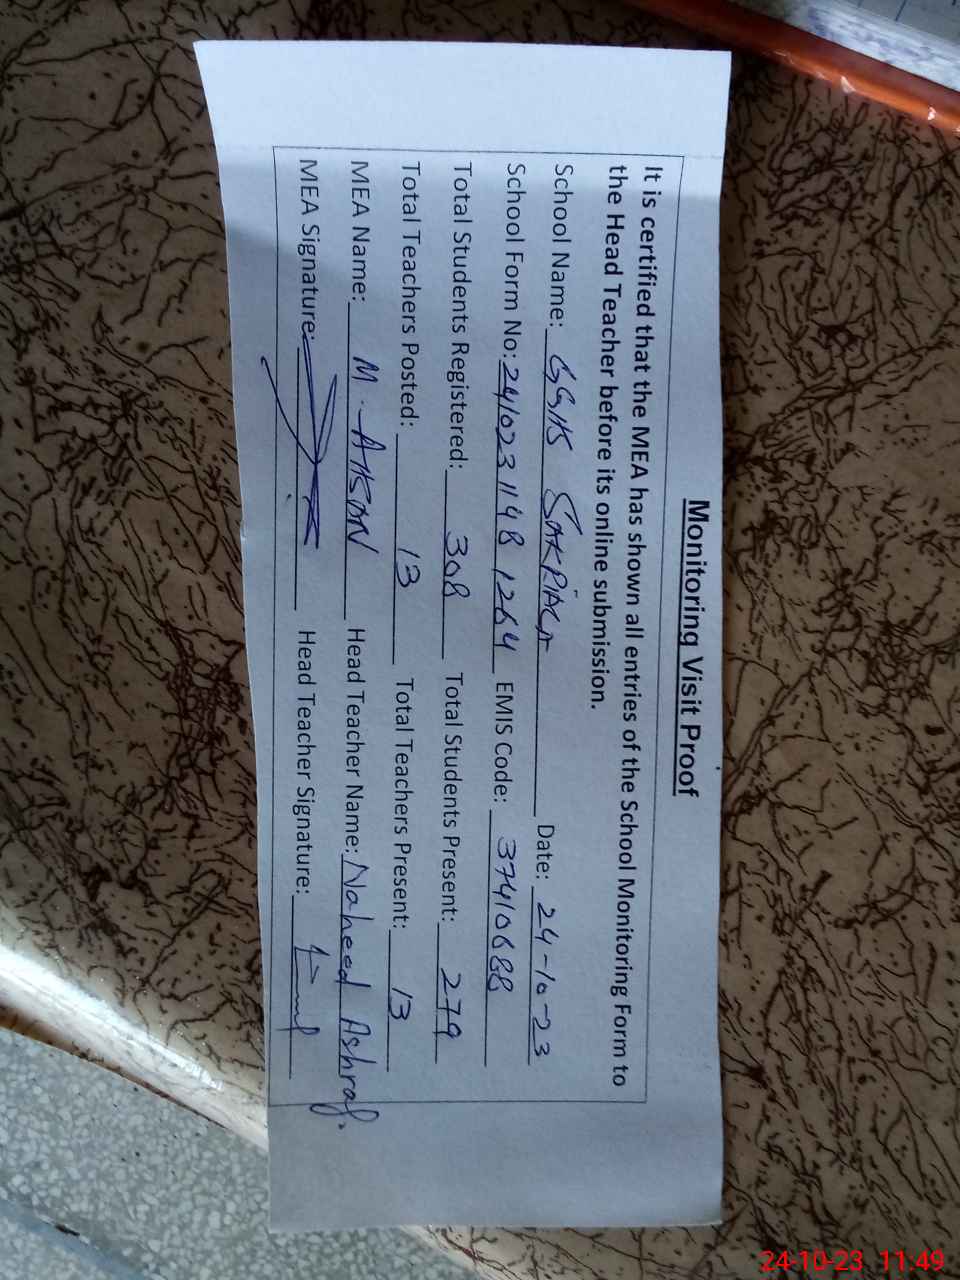 Monitoring Visit Proof
It is certified that the MEA has shown all entries of the School Monitoring Form to
the Head Teacher before its online submission.
School Name: GGHS Date: 24-10-23
School Form No: 241023 1148 1264 EMIS Code: 37410688
Total Students Registered: 308 Total Students Present: 279
Total Teachers Posted: 13 Total Teachers Present: 13
MEA Name: M. AHSAN Head Teacher Name: Naheed Ashraf.
MEA Signature: Head Teacher Signature:
24-10-23 11:49